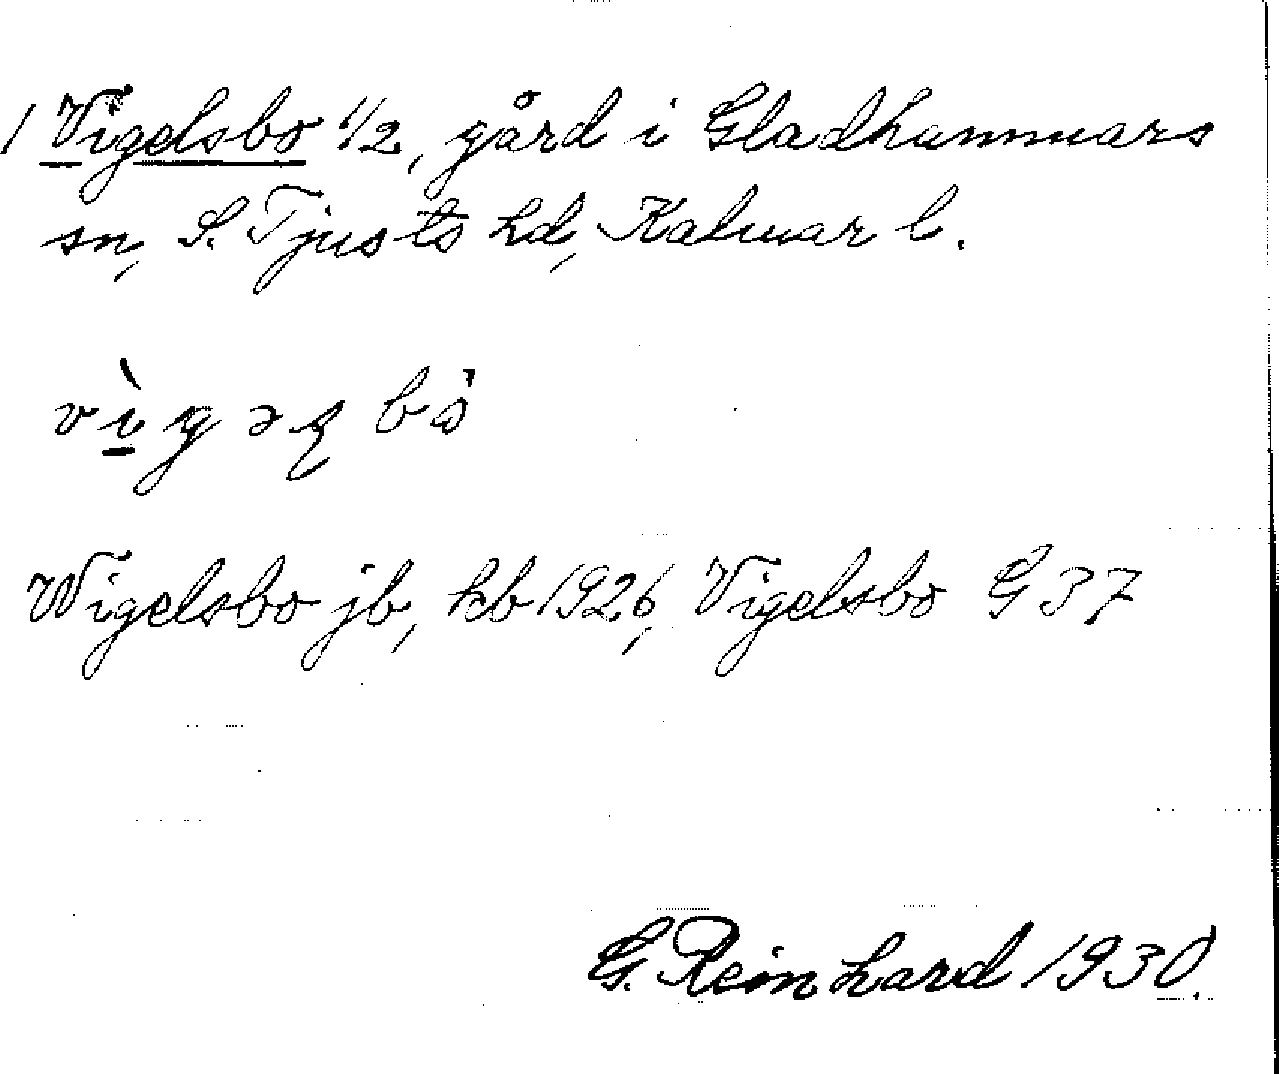 1 Vigelsbo 1/2, gård i Gladhammars
sn, S. Tjusts hd, Kalmar l.
Wigelsbo jb, kb 1926, Vigelsbo G 37
G. Reinhard 1930.